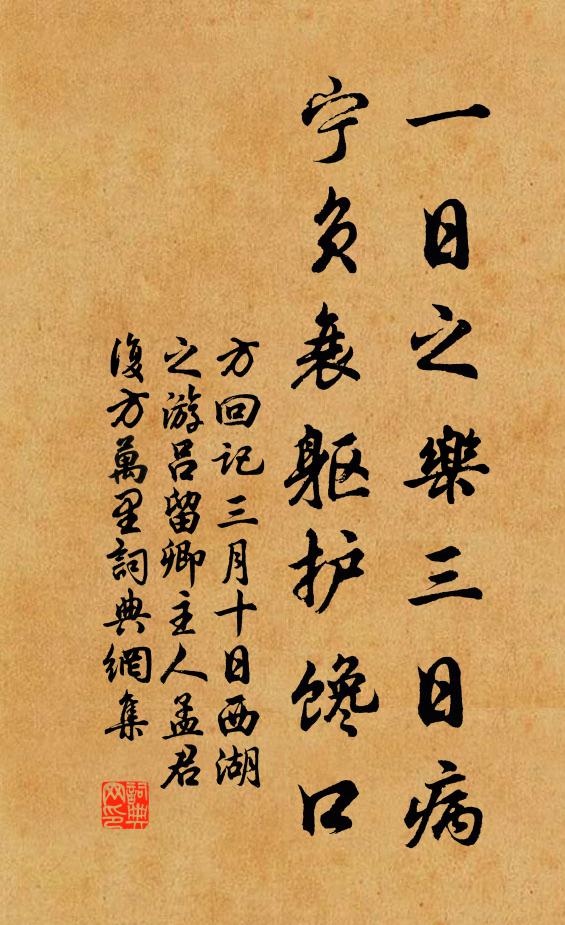 一日之樂三日病
宁負衰躯护馋口
方回记三月十日西湖
之游吕留卿主人孟君
復方萬里詞典網集
詞典網印